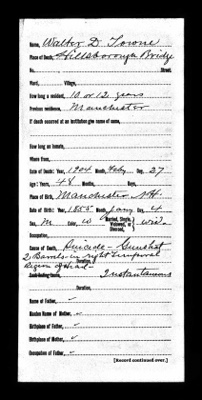 Name, Walter D. Towne
Place of Death, Hillsborough Bridge
No. Street.
Ward, Village,
How long a resident, 10 or 12 years
Previous residence, Manchester
If death occurred at an institution give name of same,
How long an inmate,
Where from,
Date of Death: Year, 1904 Month, July Day, 27
Age: Years, 48 Months, Days,
Place of Birth, Manchester N.H.
Date of Birth: Year, 1855 Month, Day, 4
Sex, M Color, W Married, Single, Widowed, or Divorced, wid.
Occupation,
Cause of Death, Suicide - Gunshot
2 Barrels in right temporal
Duration,
Region of Head -
Contributing Cause, Instantaneous
Duration,
Name of Father,
Maiden Name of Mother,
Birthplace of Father,
Birthplace of Mother,
Occupation of Father,
[Record continued over.]